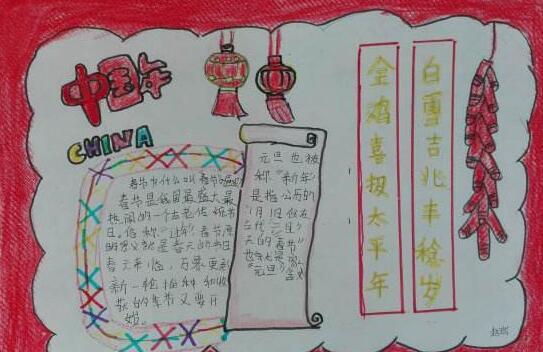 中国年
CHINA
春节为什么叫春节
春节是我国最盛大最
热闹的一个古老传统节
日。俗称"过年"春节原
春天来临，万象更
新一轮播种和收
获的季节又要开
始。
元旦也被
称"新年"
是指公历的
1月1日但在
古代
天的春节"
"元旦"
白雪吉兆丰稔岁
金鸡喜报太平年